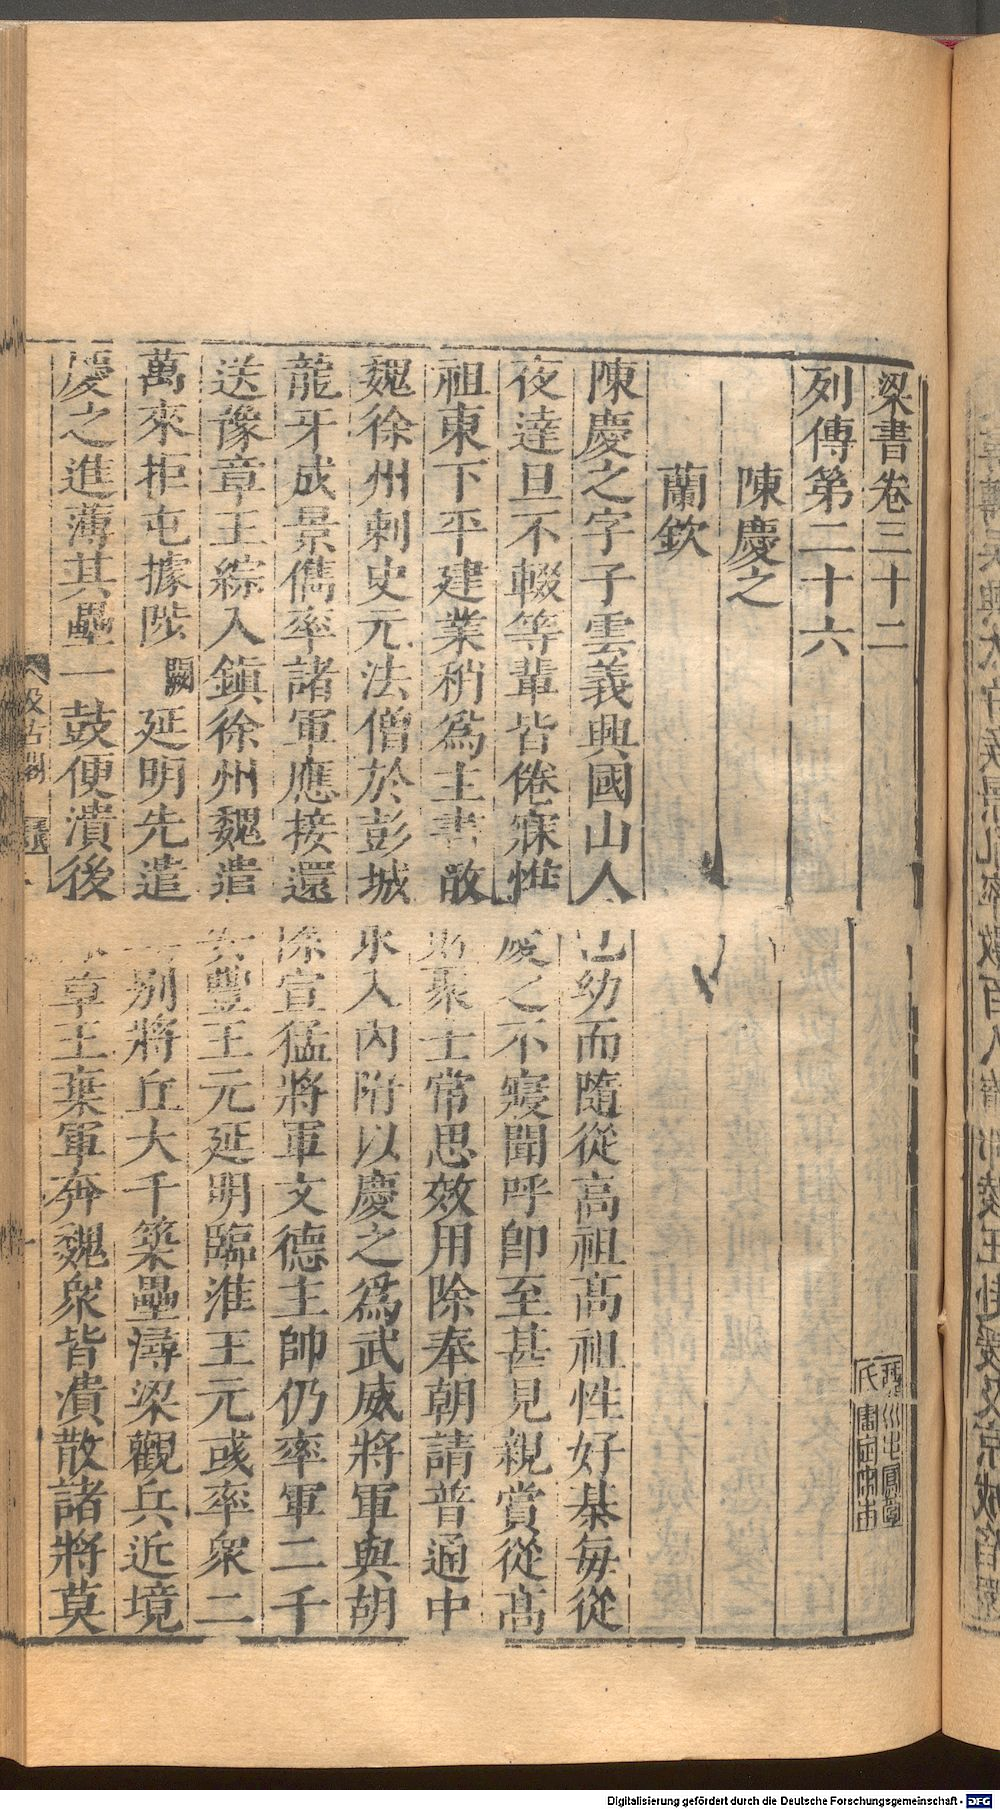 梁書卷三十二
列傳第二十六
陳慶之
蘭欽
陳慶之字子雲義興國山人也幼而隨從高祖高祖性好棊每從
夜達旦不輟等輩皆倦寐惟慶之不寢聞呼卽至甚見親賞從高
祖東下平建業稍爲主書散財聚士常思效用除奉朝請普通中
魏徐州刺史元法僧於彭城求入內附以慶之爲武威將軍與胡
龍牙成景儁率諸軍應接還除宣猛將軍文德主帥仍率軍二千
送豫章王綜入鎮徐州魏遣安豐王元延明臨淮王元彧率衆二
萬來拒屯據陟闕延明先遣其別將丘大千築壘潯梁觀兵近境
慶之進薄其壘一鼓便潰後豫章王棄軍奔魏衆皆潰散諸將莫
汲古閣
琴川毛鳳苞
氏審定宋本
Digitalisierung gefördert durch die Deutsche Forschungsgemeinschaft - DFG